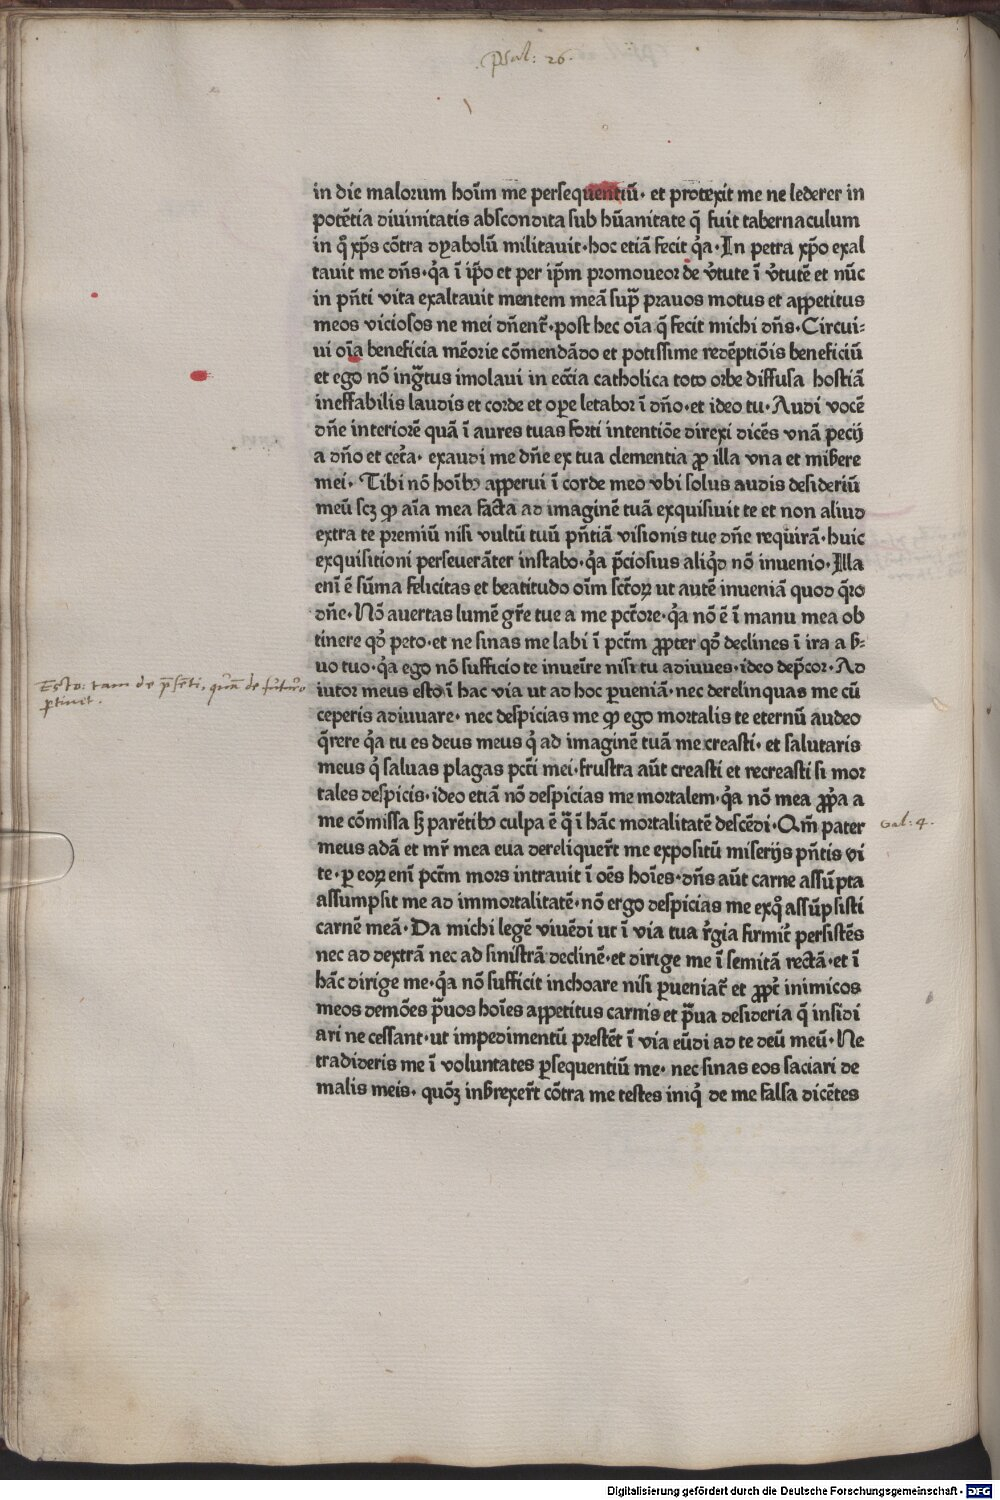 Psal: 26.
in die malorum hoīm me persequentiū· et protexit me ne lederer in
potētia diuinitatis abscondita sub hūanitate q̄ fuit tabernaculum
in q̊ xp̄s cōtra dyabolū militauit·hoc etiā fecit q̇a·In petra xp̄o exal
tauit me dn̄s·q̇a ī ip̄o et per ip̄m promoueor de v̓tute ī v̓tutē et nūc
in pn̄ti vita exaltauit mentem meā sup̄ prauos motus et appetitus
meos viciosos ne mei dn̄ent᷑·post hec oīa q̄ fecit michi dn̄s·Circui⸗
ui oīa beneficia mēorie cōmendādo et potissime redēptiōis beneficiū
et ego nō ingr̄tus imolaui in ecc̄ia catholica toto orbe diffusa hostiā
ineffabilis laudis et corde et oꝑe letabor ī dn̄o·et ideo tu·Audi vocē
dn̄e interiorē quā ī aures tuas forti intentiōe direxi dicēs vnā pecij
a dn̄o et cet̓a· exaudi me dn̄e ex tua clementia ꝓ illa vna et miẞere
mei· Tibi nō hoībꝰ apperui ī corde meo vbi solus audis desideriū
meū scꝫ ꝙ aīa mea facta ad imaginē tuā exquisiuit te et non aliud
extra te premiū nisi vultū tuū pn̄tiā visionis tue dn̄e requirā·huic
exquisitioni perseuerāter instabo·q̇a p̄ciosius aliq̇d nō inuenio·Illa
enī ē sūma felicitas et beatitudo oīm sct̄oꝝ ut autē inueniā quod q̄ro
dn̄e·Nō auertas lumē gr̄e tue a me pct̄ore·q̇a nō ē ī manu mea ob
tinere qd̓ peto·et ne sinas me labi ī pct̄m ꝓpter qd̓ declines ī ira a ẞ⸗
uo tuo·q̇a ego nō sufficio te inueīre nisi tu adiuues·ideo dep̄cor·Ad
Esto: tam de p̄sēti, quā de futuro
ptinet.
iutor meus esto ī hac via ut ad hoc ꝑueniā·nec derelinquas me cū
ceperis adiuuare· nec despicias me ꝙ ego mortalis te eternū audeo
q̄rere q̇a tu es deus meus q̇ ad imaginē tuā me creasti· et salutaris
meus q̇ saluas plagas pct̄i mei·frustra aūt creasti et recreasti si mor
tales despicis·ideo etiā nō despicias me mortalem·q̇a nō mea ꝓp̄a a
me cōmissa sꝫ parētibꝰ culpa ē q̄ ī hāc mortalitatē descēdi·Qm̄ pater
Gal: 4.
meus adā et mr̄ mea eua dereliquer̄t me expositū miserijs pn̄tis vi
te·ꝑ eoꝝ enī pct̄m mors intrauit ī oēs hoīes·dn̄s aūt carne assūpta
assumpsit me ad immortalitatē·nō ergo despicias me exq̊ assūpsisti
carnē meā·Da michi legē viuēdi ut ī via tua r̓gia firmit̓ persistēs
nec ad dextrā nec ad sinistrā declinē·et dirige me ī semitā rectā·et ī
hāc dirige me·q̇a nō sufficit inchoare nisi ꝑueniat᷑ et ꝓpt̓ inimicos
meos demōes p̄uos hoīes appetitus carnis et p̄ua desideria q̄ insidi
ari ne cessant·ut impedimentū prestēt ī via eūdi ad te deū meū·Ne
tradideris me ī voluntates ꝑsequentiū me· nec sinas eos saciari de
malis meis· quōꝫ inẞrexer̄t cōtra me testes iniq̇ de me falsa dicētes
Digitalisierung gefördert durch die Deutsche Forschungsgemeinschaft - DFG